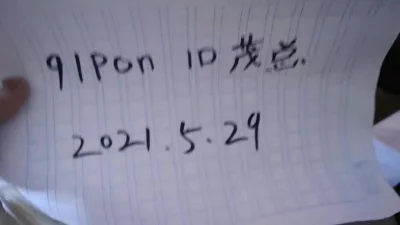 91pon ID茂总.
2021.5.29